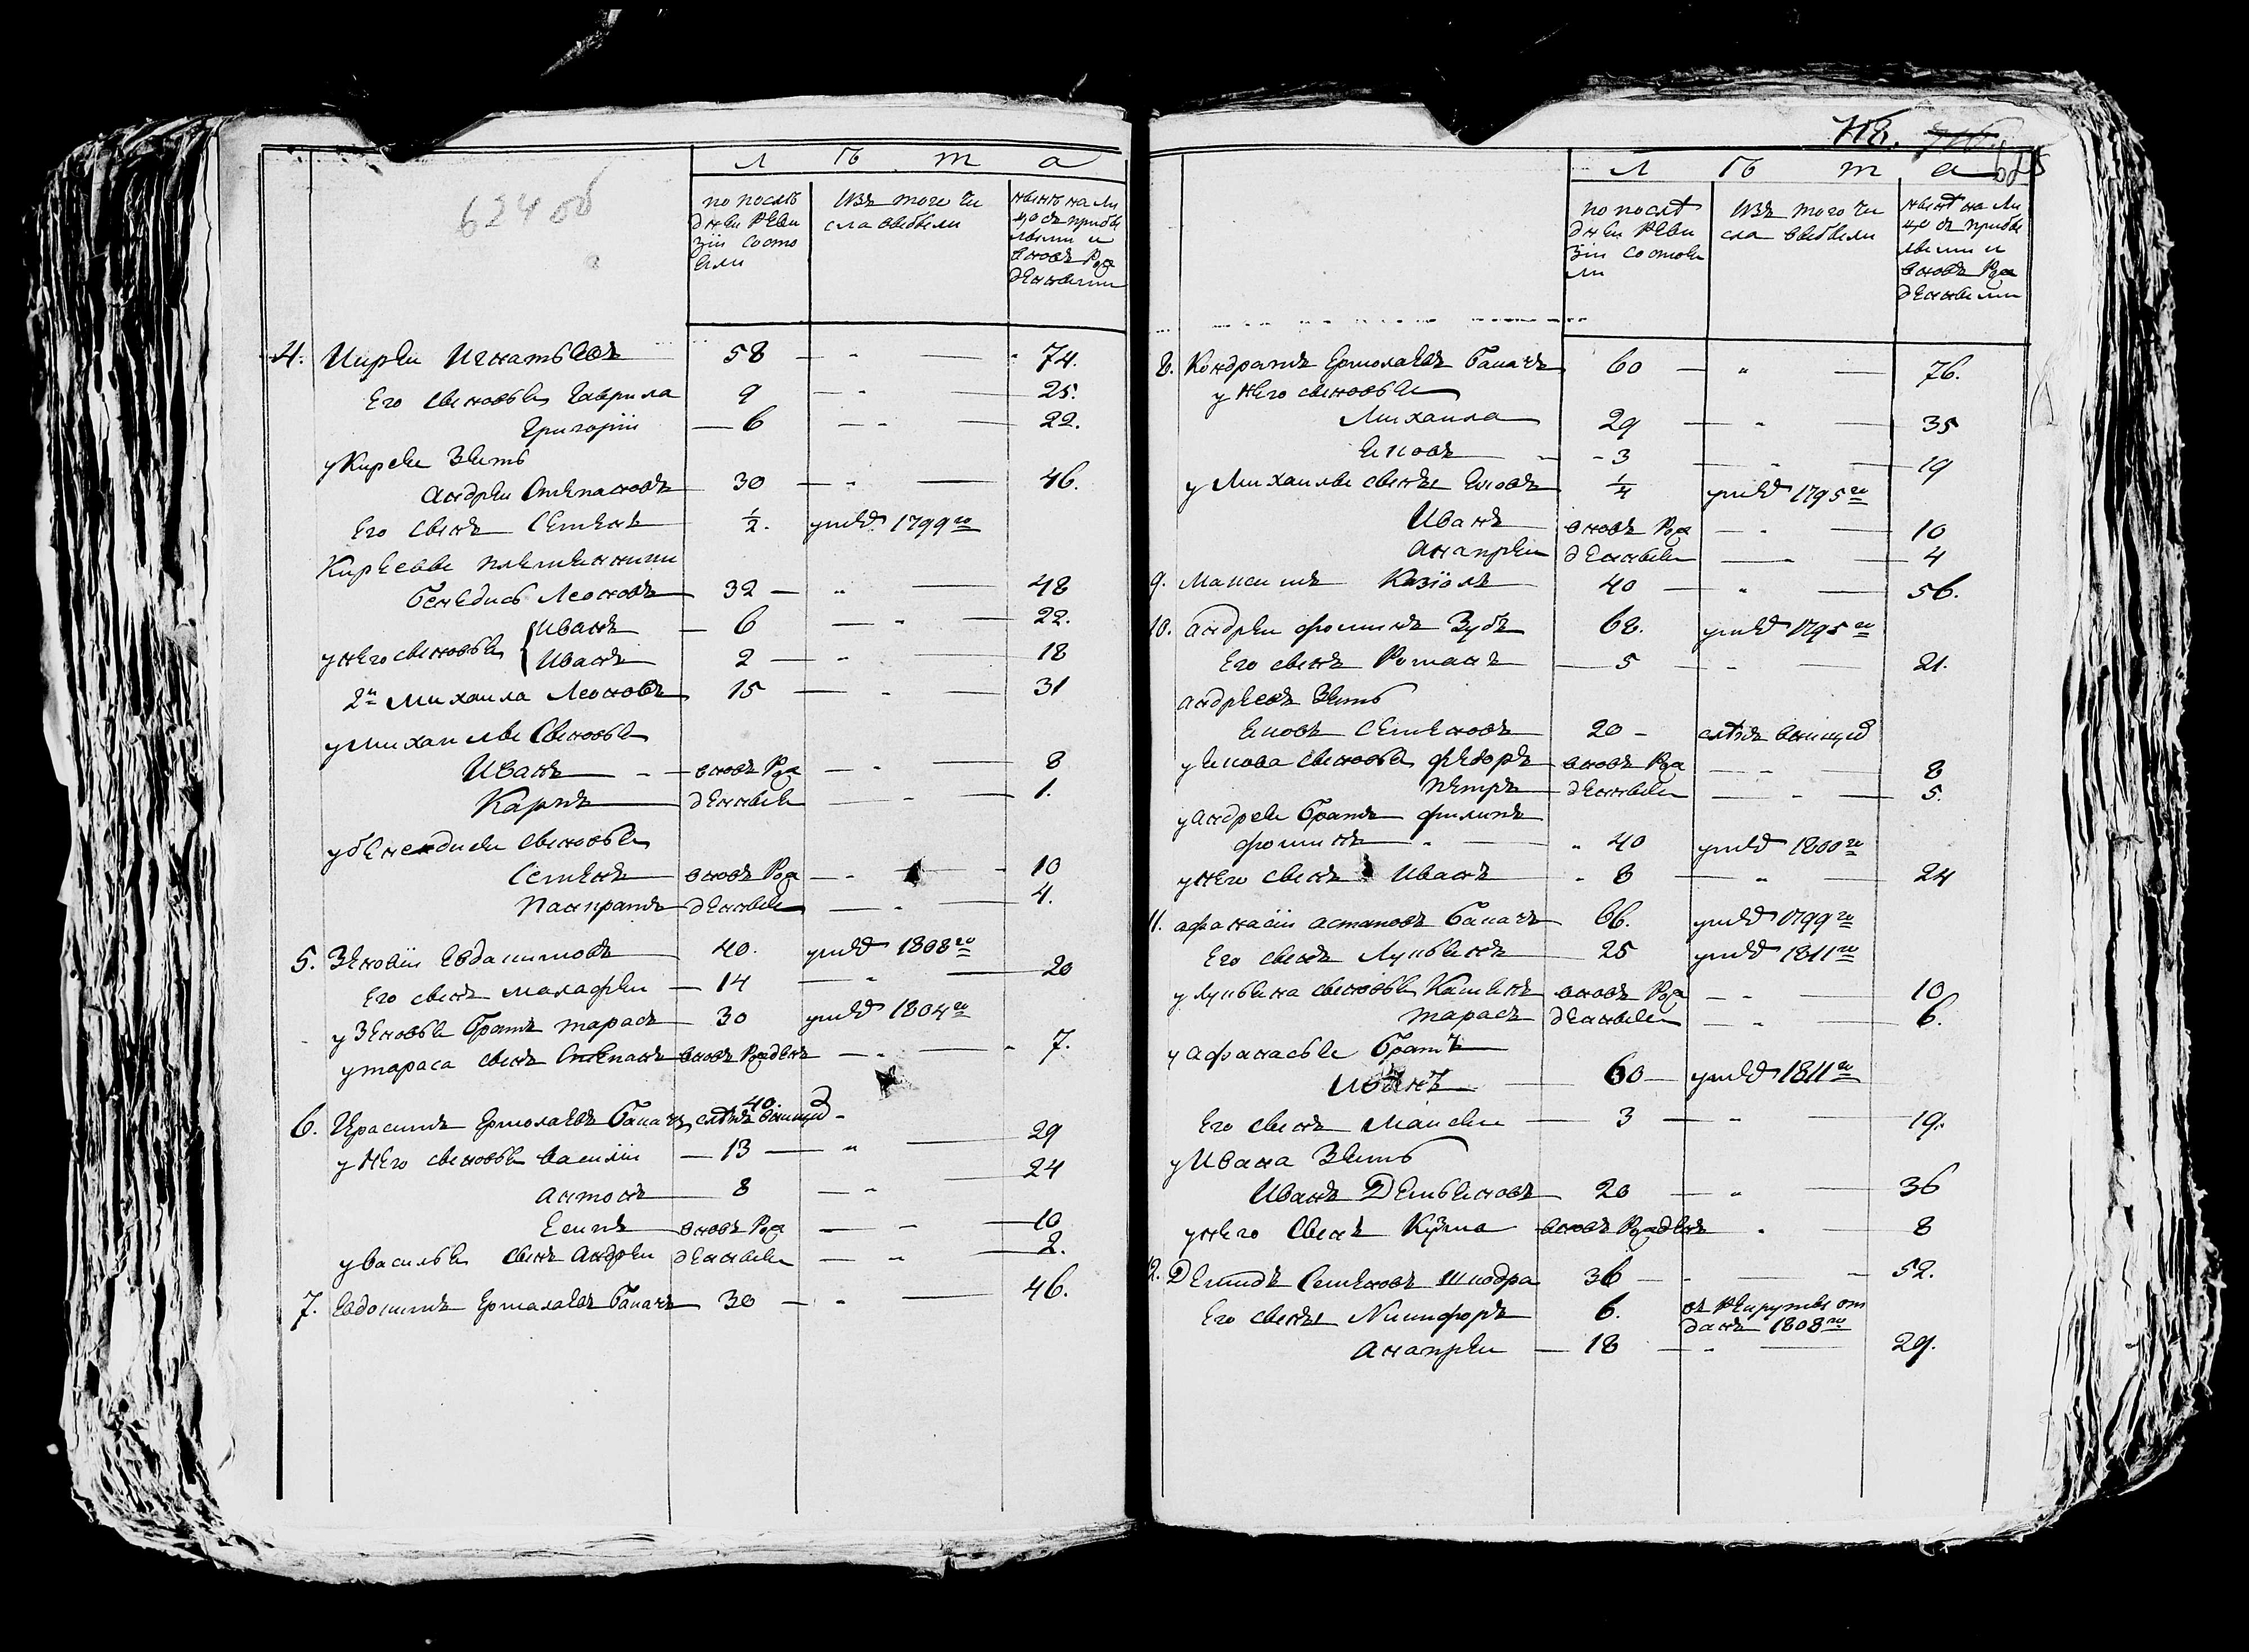 624 об
Л ѣ т а
по послѣ
дней Реви
зіи состо
яли
Изъ того чи
сла выбыли
нынѣ на ли
цо съ прибы
лыми и
вновь Рож
денными
4. Кирѣй Игнатьевъ 58 — " " 74.
Его сыновья Гаврила 9 — " — 25.
Григорій — 6 — " — 22.
у Кирея Зять
Андрей Степановъ 30 — " — 46.
Его сынъ Семенъ ½. умер 1799го
Киреевы племянники
Бенедись Леоновъ 32 — " — 48
Иванъ — 6 — " — 22.
у него сыновья
Иванъ 2 — " — 18
2й Михаила Леоновъ 15 — " — 31
у Михаилы Сыновья
Иванъ — вновь Рож — " — 8
Карпъ денные — " — 1.
у бенедися сыновья
Семенъ вновь Рож — " — 10
Панкратъ денные — " — 4.
5. Зеновій Евдакимовъ 40. умер 1808го
Его сынъ малафей — 14 — " — 20
у Зеновья братъ тарасъ 30 умер 1804го
у тараса сынъ Степанъ вновь Рожденъ — " — 7.
40.
6. Герасимъ Ермолаевъ слѣпъ
у Него сыновья василій — 13 — " — 29
антонъ 8 — " — 24
Есипъ вновь Рож — " — 10
у василья сынъ Андрей денные — " — 2.
7. Евдокимъ Ермолаевъ 30 — " — 46.
718.
Л ѣ т а
по послѣ
дней Реви
зіи состоя
ли
Изъ того чи
сла выбыли
нынѣ на ли
цо съ прибы
лыми и
вновь Рож
денными
8. Кондратъ Ермолаевъ 60 — " — 76.
у Него сыновья
Михаила 29 — " — 35
Яковъ - 3 — " — 19
у Михаилы сынъ Яковъ ¼ умер 1795го
Иванъ вновь Рож — " — 10
Анапрей денные — " — 4
9. Максимъ Казіолъ 40 — " — 56.
10. Андрей фоминъ Зубъ 68. умер 1795го
Его сынъ Романъ — 5 — " — 21.
андреевъ Зять
Яковъ Семеновъ 20 - слѣпъ
у Якова сыновья фѣдоръ вновь Рож — " — 8
Петръ денные — " — 5.
у Андрея братъ филипъ
фоминъ " — " 40 умер 1800го
у Него сынъ Иванъ " 8 — " — 24
11. афанасій астаповъ 66. умер 1799го
Его сынъ Лукьянъ 25 умер 1811го
у Лукьяна сыновья Касьянъ вновь Рож — " — 10
тарасъ денные — " — 6.
у афанасья братъ
Иванъ — 60 — умер 1811го
Его сынъ Макей — 3 — " — 19.
у Ивана Зять
Иванъ Демьяновъ 20 — " — 36
у него Сынъ Кузма вновь Рожденъ " — 8
12. Демидъ Семеновъ Шкодра 36 — " — 52.
Его сынъ Никифоръ 6. въ Рекруты от
данъ 1808го
Анапрей — 18 — " — 29.